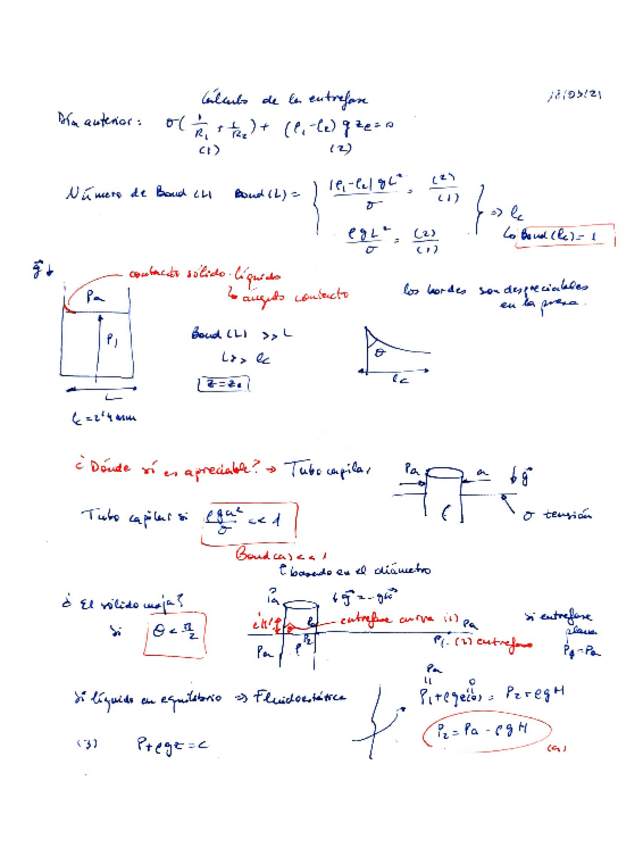 Cálculo de la entrefase 18/03/21
Día anterior: σ(1/R₁ + 1/R₂) + (ρ₁-ρ₂) g z_e = 0
(1) (2)
Número de Bond (L) Bond (L) = { |ρ₁-ρ₂| g L²/σ = (2)/(1) } ⇒ lc
ρ g L²/σ = (2)/(1) ↳ Bond (lc) = 1
g↓ contacto sólido-líquido
↳ ángulo contacto los bordes son despreciables
Pa en la presa.
P₁ Bond (L) >> L θ
L >> lc
z = z₀ lc
L
lc = 2'4 mm
¿Dónde sí es apreciable? → Tubo capilar Pa a ↓ g
Tubo capilar si ρ g a²/σ << 1 ρ σ tensión
Bond (a) << 1
basado en el diámetro
¿El sólido moja? Pa ↓ g = -g k
si θ < π/2 entrefase curva (1) Pa si entrefase
Pa ρ P₂ P₁ (2) entrefase plana
Pa
Si líquido en equilibrio ⇒ Fluidoestática P₁ + ρ g z(0) = P₂ + ρ g H
(3) P + ρ g z = c P₂ = Pa - ρ g H
(4)